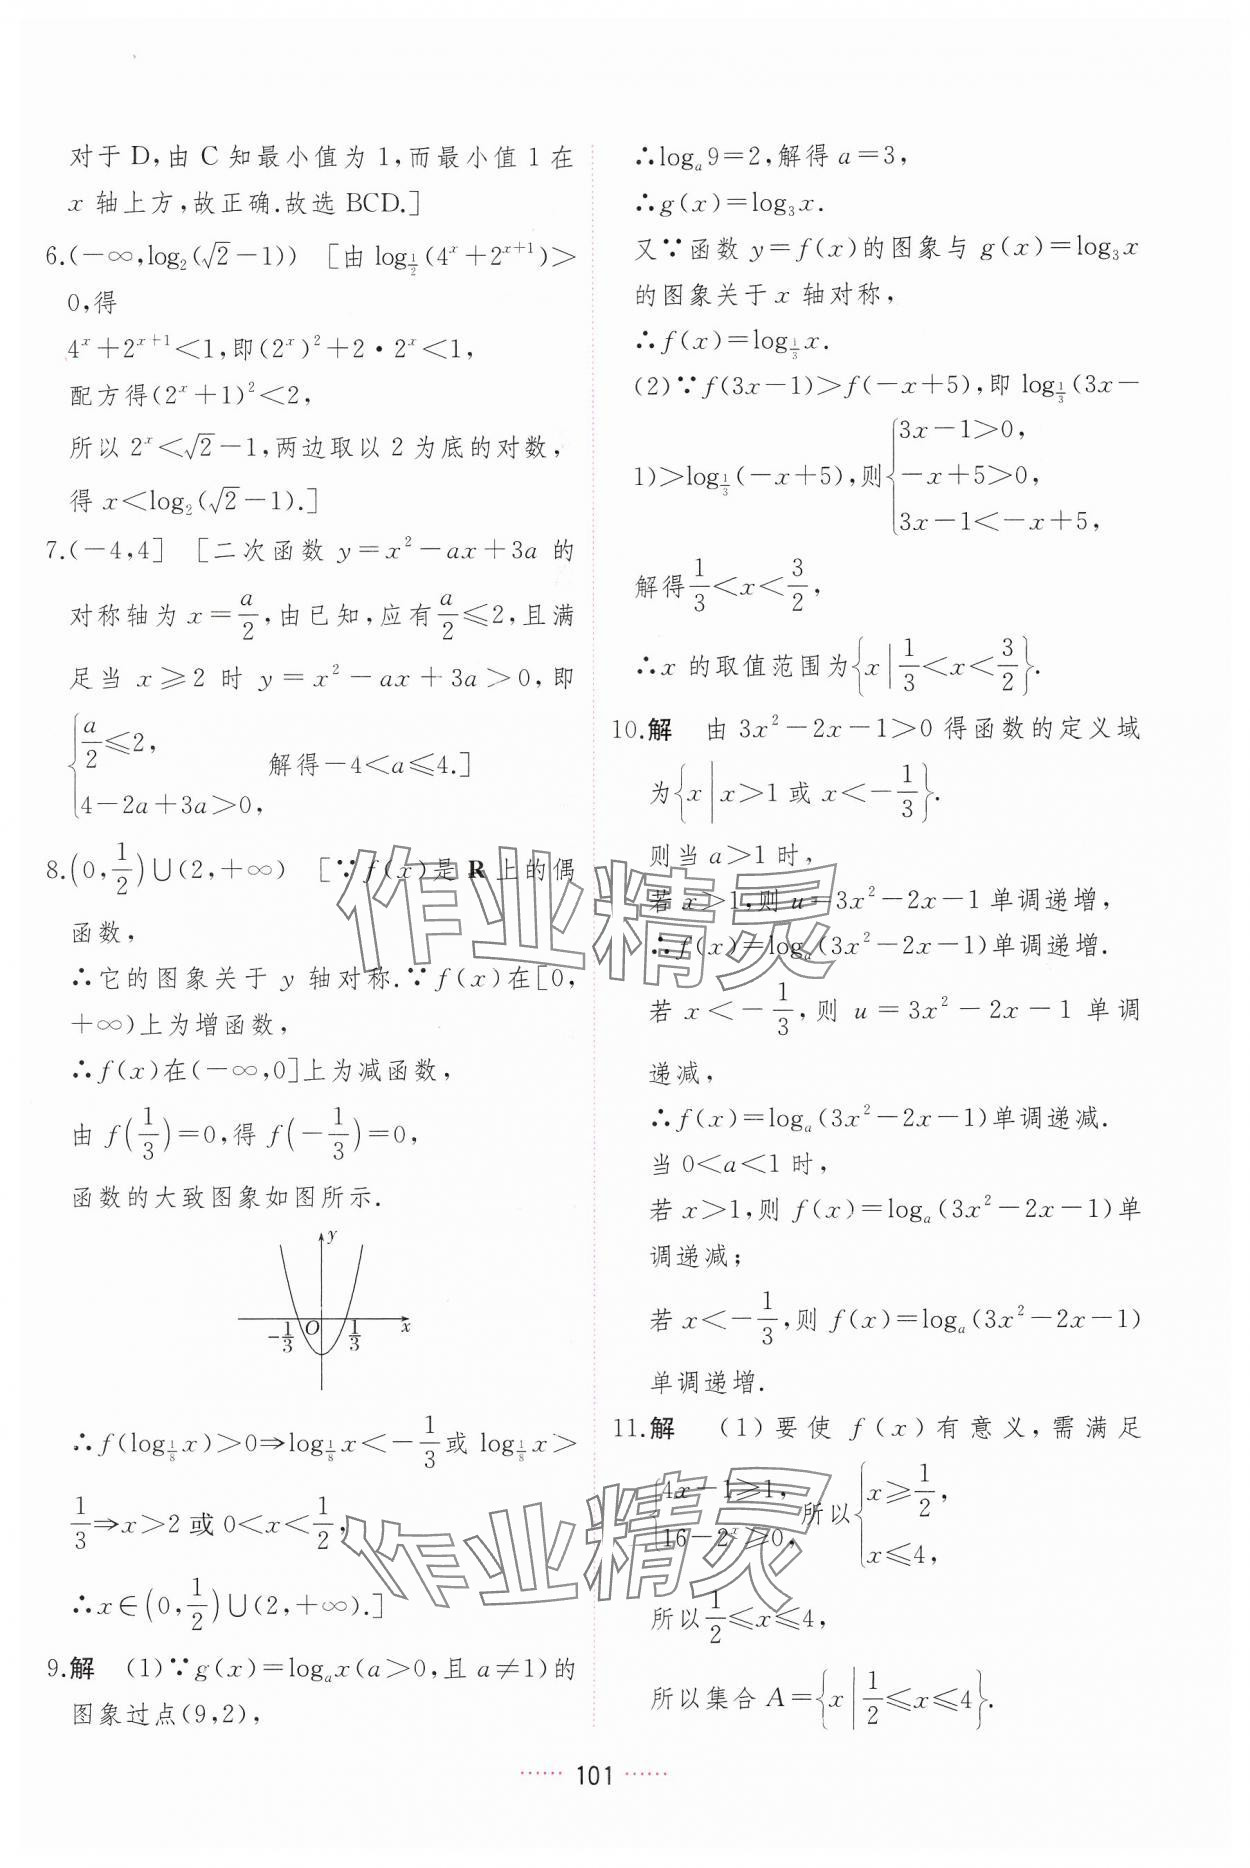 对于 D,由 C 知最小值为 1,而最小值 1 在
x 轴上方,故正确.故选 BCD.]
6.(-∞,log₂(√2-1)) [由 log_{1/2}(4^x+2^{x+1})>
0,得
4^x+2^{x+1}<1,即(2^x)²+2·2^x<1,
配方得(2^x+1)²<2,
所以 2^x<√2-1,两边取以 2 为底的对数,
得 x<log₂(√2-1).]
7.(-4,4] [二次函数 y=x²-ax+3a 的
对称轴为 x=a/2,由已知,应有a/2≤2,且满
足当 x≥2 时 y=x²-ax+3a>0,即
{a/2≤2,
4-2a+3a>0, 解得-4<a≤4.]
8.(0,1/2)∪(2,+∞) [∵f(x)是 R 上的偶
函数,
∴它的图象关于 y 轴对称.∵f(x)在[0,
+∞)上为增函数,
∴f(x)在(-∞,0]上为减函数,
由 f(1/3)=0,得 f(-1/3)=0,
函数的大致图象如图所示.
y
-1/3 O 1/3 x
∴f(log_{1/8}x)>0⇒log_{1/8}x<-1/3或 log_{1/8}x>
1/3⇒x>2 或 0<x<1/2,
∴x∈(0,1/2)∪(2,+∞).]
9.解 (1)∵g(x)=log_a x(a>0,且 a≠1)的
图象过点(9,2),
∴log_a 9=2,解得 a=3,
∴g(x)=log₃x.
又∵函数 y=f(x)的图象与 g(x)=log₃x
的图象关于 x 轴对称,
∴f(x)=log_{1/3}x.
(2)∵f(3x-1)>f(-x+5),即 log_{1/3}(3x-
1)>log_{1/3}(-x+5),则{3x-1>0,
-x+5>0,
3x-1<-x+5,
解得1/3<x<3/2,
∴x 的取值范围为{x|1/3<x<3/2}.
10.解 由 3x²-2x-1>0 得函数的定义域
为{x|x>1 或 x<-1/3}.
则当 a>1 时,
若 x>1,则 u=3x²-2x-1 单调递增,
∴f(x)=log_a(3x²-2x-1)单调递增.
若 x<-1/3,则 u=3x²-2x-1 单调
递减,
∴f(x)=log_a(3x²-2x-1)单调递减.
当 0<a<1 时,
若 x>1,则 f(x)=log_a(3x²-2x-1)单
调递减;
若 x<-1/3,则 f(x)=log_a(3x²-2x-1)
单调递增.
11.解 (1)要使 f(x)有意义,需满足
{4x-1≥1,
16-2^x≥0, 所以{x≥1/2,
x≤4,
所以1/2≤x≤4,
所以集合 A={x|1/2≤x≤4}.
101
作业精灵
作业精灵